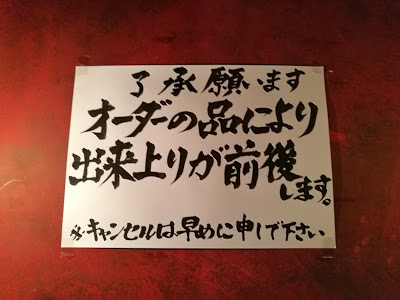 了承願います
オーダーの品により
出来上りが前後します。
※キャンセルは早めに申しで下さい